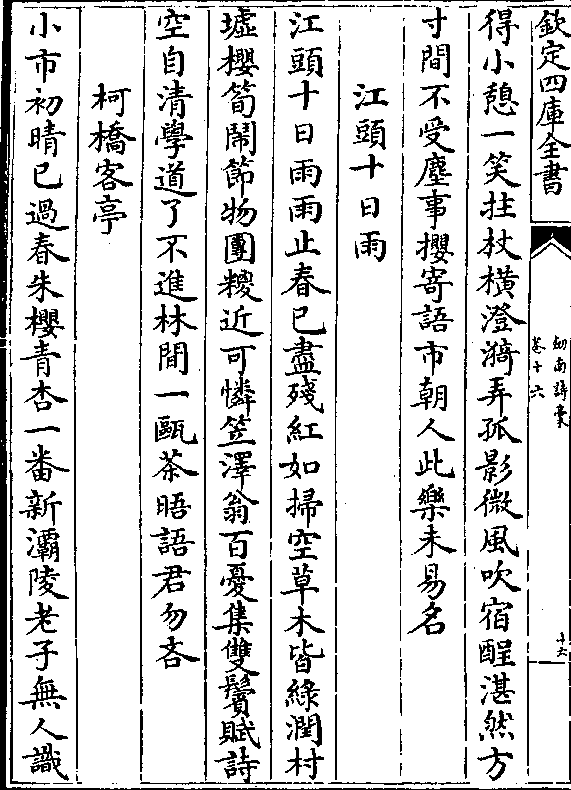 欽定四庫全書
劍南詩稾
卷十六
十六
得小憩一笑拄杖橫澄漪弄孤影微風吹宿酲湛然方
寸間不受塵事攖寄語市朝人此樂未易名
江頭十日雨
江頭十日雨雨止春已盡殘紅如掃空草木皆綠潤村
墟櫻筍鬧節物團糉近可憐笠澤翁百憂集雙鬢賦詩
空自清學道了不進林間一甌茶晤語君勿吝
柯橋客亭
小市初晴已過春朱櫻青杏一番新灞陵老子無人識